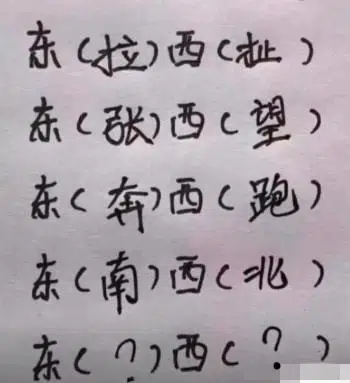 东(拉)西(扯)
东(张)西(望)
东(奔)西(跑)
东(南)西(北)
东(?)西(?)